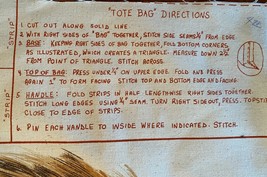 "TOTE BAG" DIRECTIONS
1. CUT OUT ALONG SOLID LINE
2. WITH RIGHT SIDES OF "BAG" TOGETHER, STITCH SIDE SEAMS ¼" FROM EDGE
3. BASE: KEEPING RIGHT SIDES OF BAG TOGETHER, FOLD BOTTOM CORNERS,
AS ILLUSTRATED, WHICH CREATES A TRIANGLE. MEASURE DOWN 2½"
FROM POINT OF TRIANGLE. STITCH ACROSS
4. TOP OF BAG: PRESS UNDER ¼" ON UPPER EDGE. FOLD AND PRESS
AGAIN 1" TO FORM FACING STITCH TOP AND BOTTOM EDGE AND FACING
5. HANDLE: FOLD STRIPS IN HALF LENGTHWISE RIGHT SIDES TOGETHER
STITCH LONG EDGES USING ¼" SEAM. TURN RIGHT SIDE OUT, PRESS, TOPSTI
CLOSE TO EDGE OF STRIPS.
6. PIN EACH HANDLE TO INSIDE WHERE INDICATED. STITCH.
"STRIP"
"STRIP"